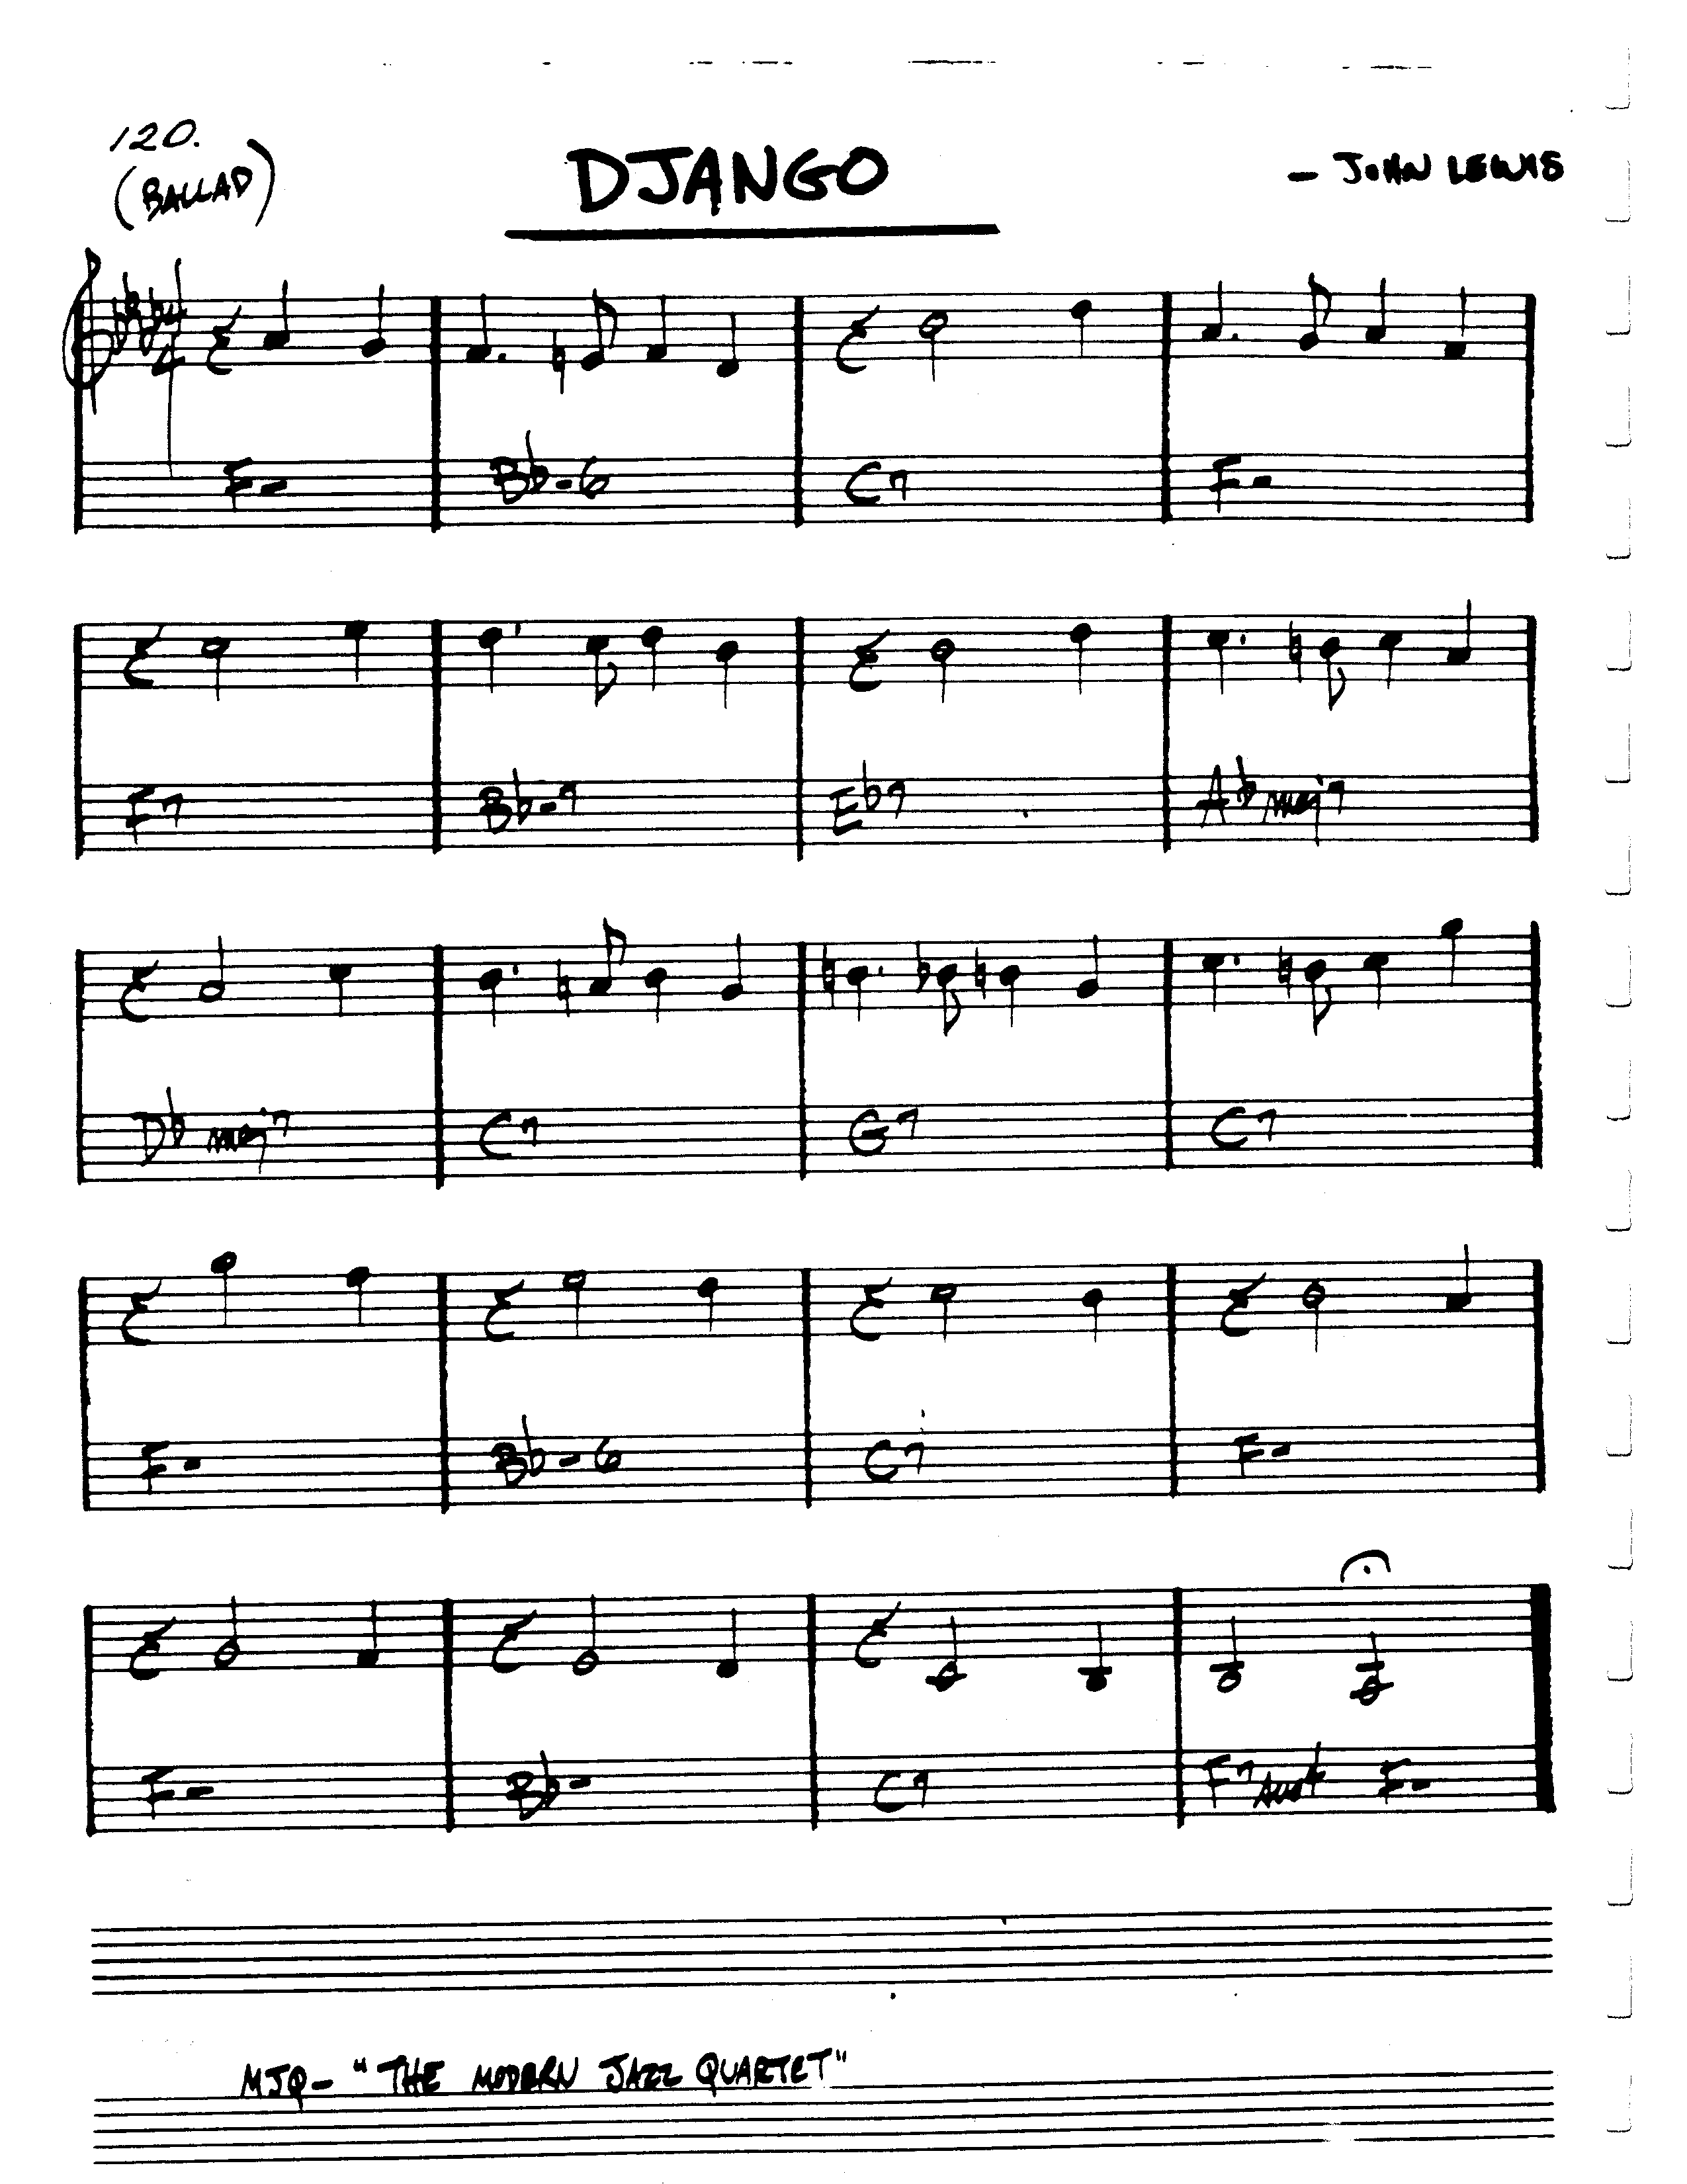 120.
(BALLAD)
DJANGO
- JOHN LEWIS
F- Bb-6 C7 F-
F7 Bb-7 Eb7 Abmaj7
Db maj7 C7 G7 C7
F- Bb-6 C7 F-
F- Bb- C7 F7sus4 F-
MJQ- "THE MODERN JAZZ QUARTET"